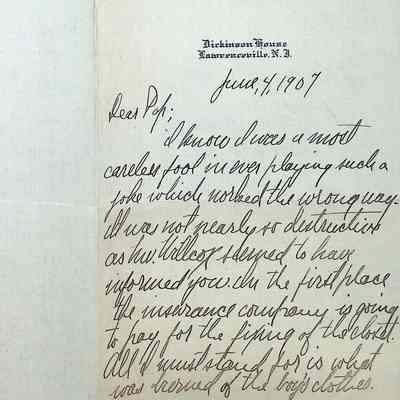 Dickinson House
Lawrenceville, N.J.
June, 4, 1907
Dear Pop;
I know I was a most
careless fool in ever playing such a
joke which worked the wrong way.
It was not nearly so destructive
as Mr. Willcox seemed to have
informed you. In the first place
the insurance company is going
to pay for the fixing of the closet.
All I must stand for is what
was burned of the boy's clothes.